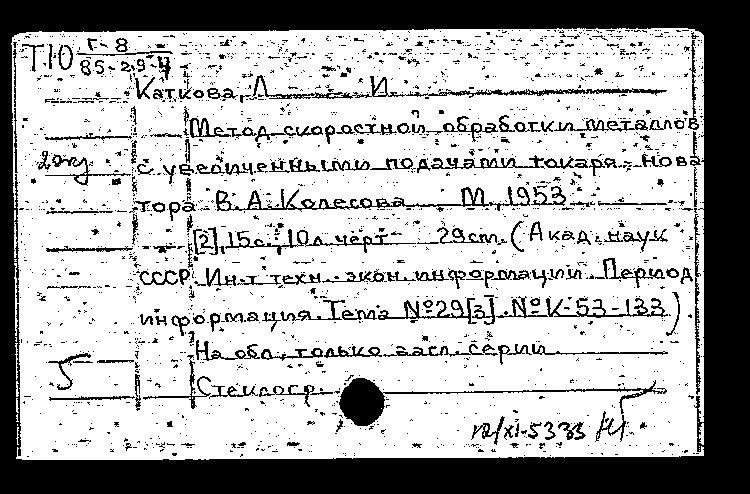 Т10 Г-8
85-2.9-4
Каткова, Л И.
Метод скоростной обработки металлов
20ку с увеличенными подачами токаря-нова
тора В.А.Колесова М, 1953
[2], 15с., 10л.черт 29cm. (Акад.наук
СССР. Ин-т техн.-экон.информации. Период
информация. Тема №29[3]. №К-53-133)
На обл. только загл. серии
5 Стеклогр.
12/XI-5333